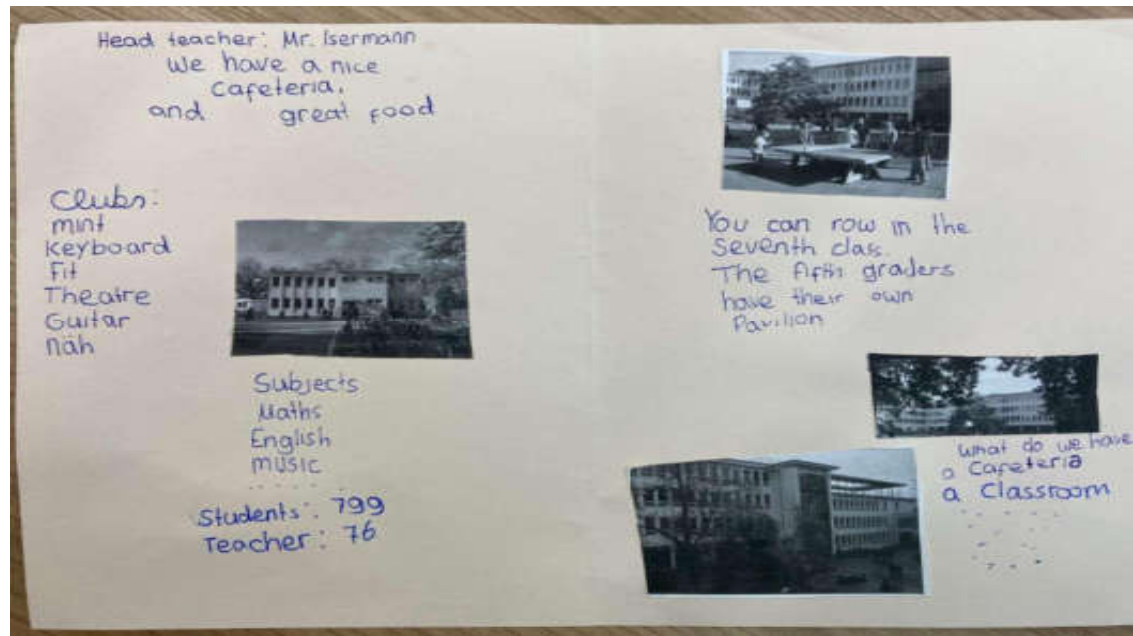 Head teacher: Mr. Isermann
We have a nice
Cafeteria.
and great food
Clubs:
mint
Keyboard
Fit
Theatre
Guitar
näh
Subjects
Maths
English
music
. . . . .
Students: 799
Teacher: 76
You can row in the
Seventh class.
The fifth graders
have their own
Pavilion
What do we have
a Cafeteria
a Classroom